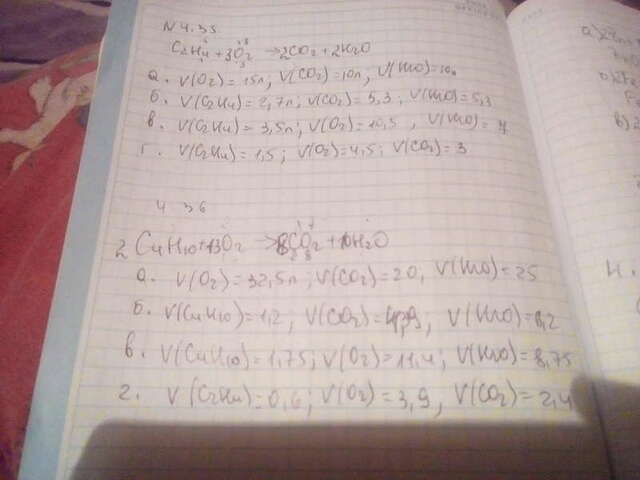 N 4.35
C2H4 + 3O2 → 2CO2 + 2H2O
а. V(O2) = 15л, V(CO2) = 10л; V(H2O) = 10л
б. V(C2H4) = 2,7л; V(CO2) = 5,3; V(H2O) = 5,3
в. V(C2H4) = 3,5л; V(O2) = 10,5, V(H2O) = 7
г. V(C2H4) = 1,5; V(O2) = 4,5; V(CO2) = 3
4 36
2C4H10 + 13O2 → 8CO2 + 10H2O
а. V(O2) = 32,5л; V(CO2) = 20; V(H2O) = 25
б. V(C4H10) = 1,2; V(CO2) = 4,9; V(H2O) = 6,2
в. V(C4H10) = 1,75; V(O2) = 11,4; V(H2O) = 8,75
г. V(C2H4) = 0,6; V(O2) = 3,9, V(CO2) = 2,4